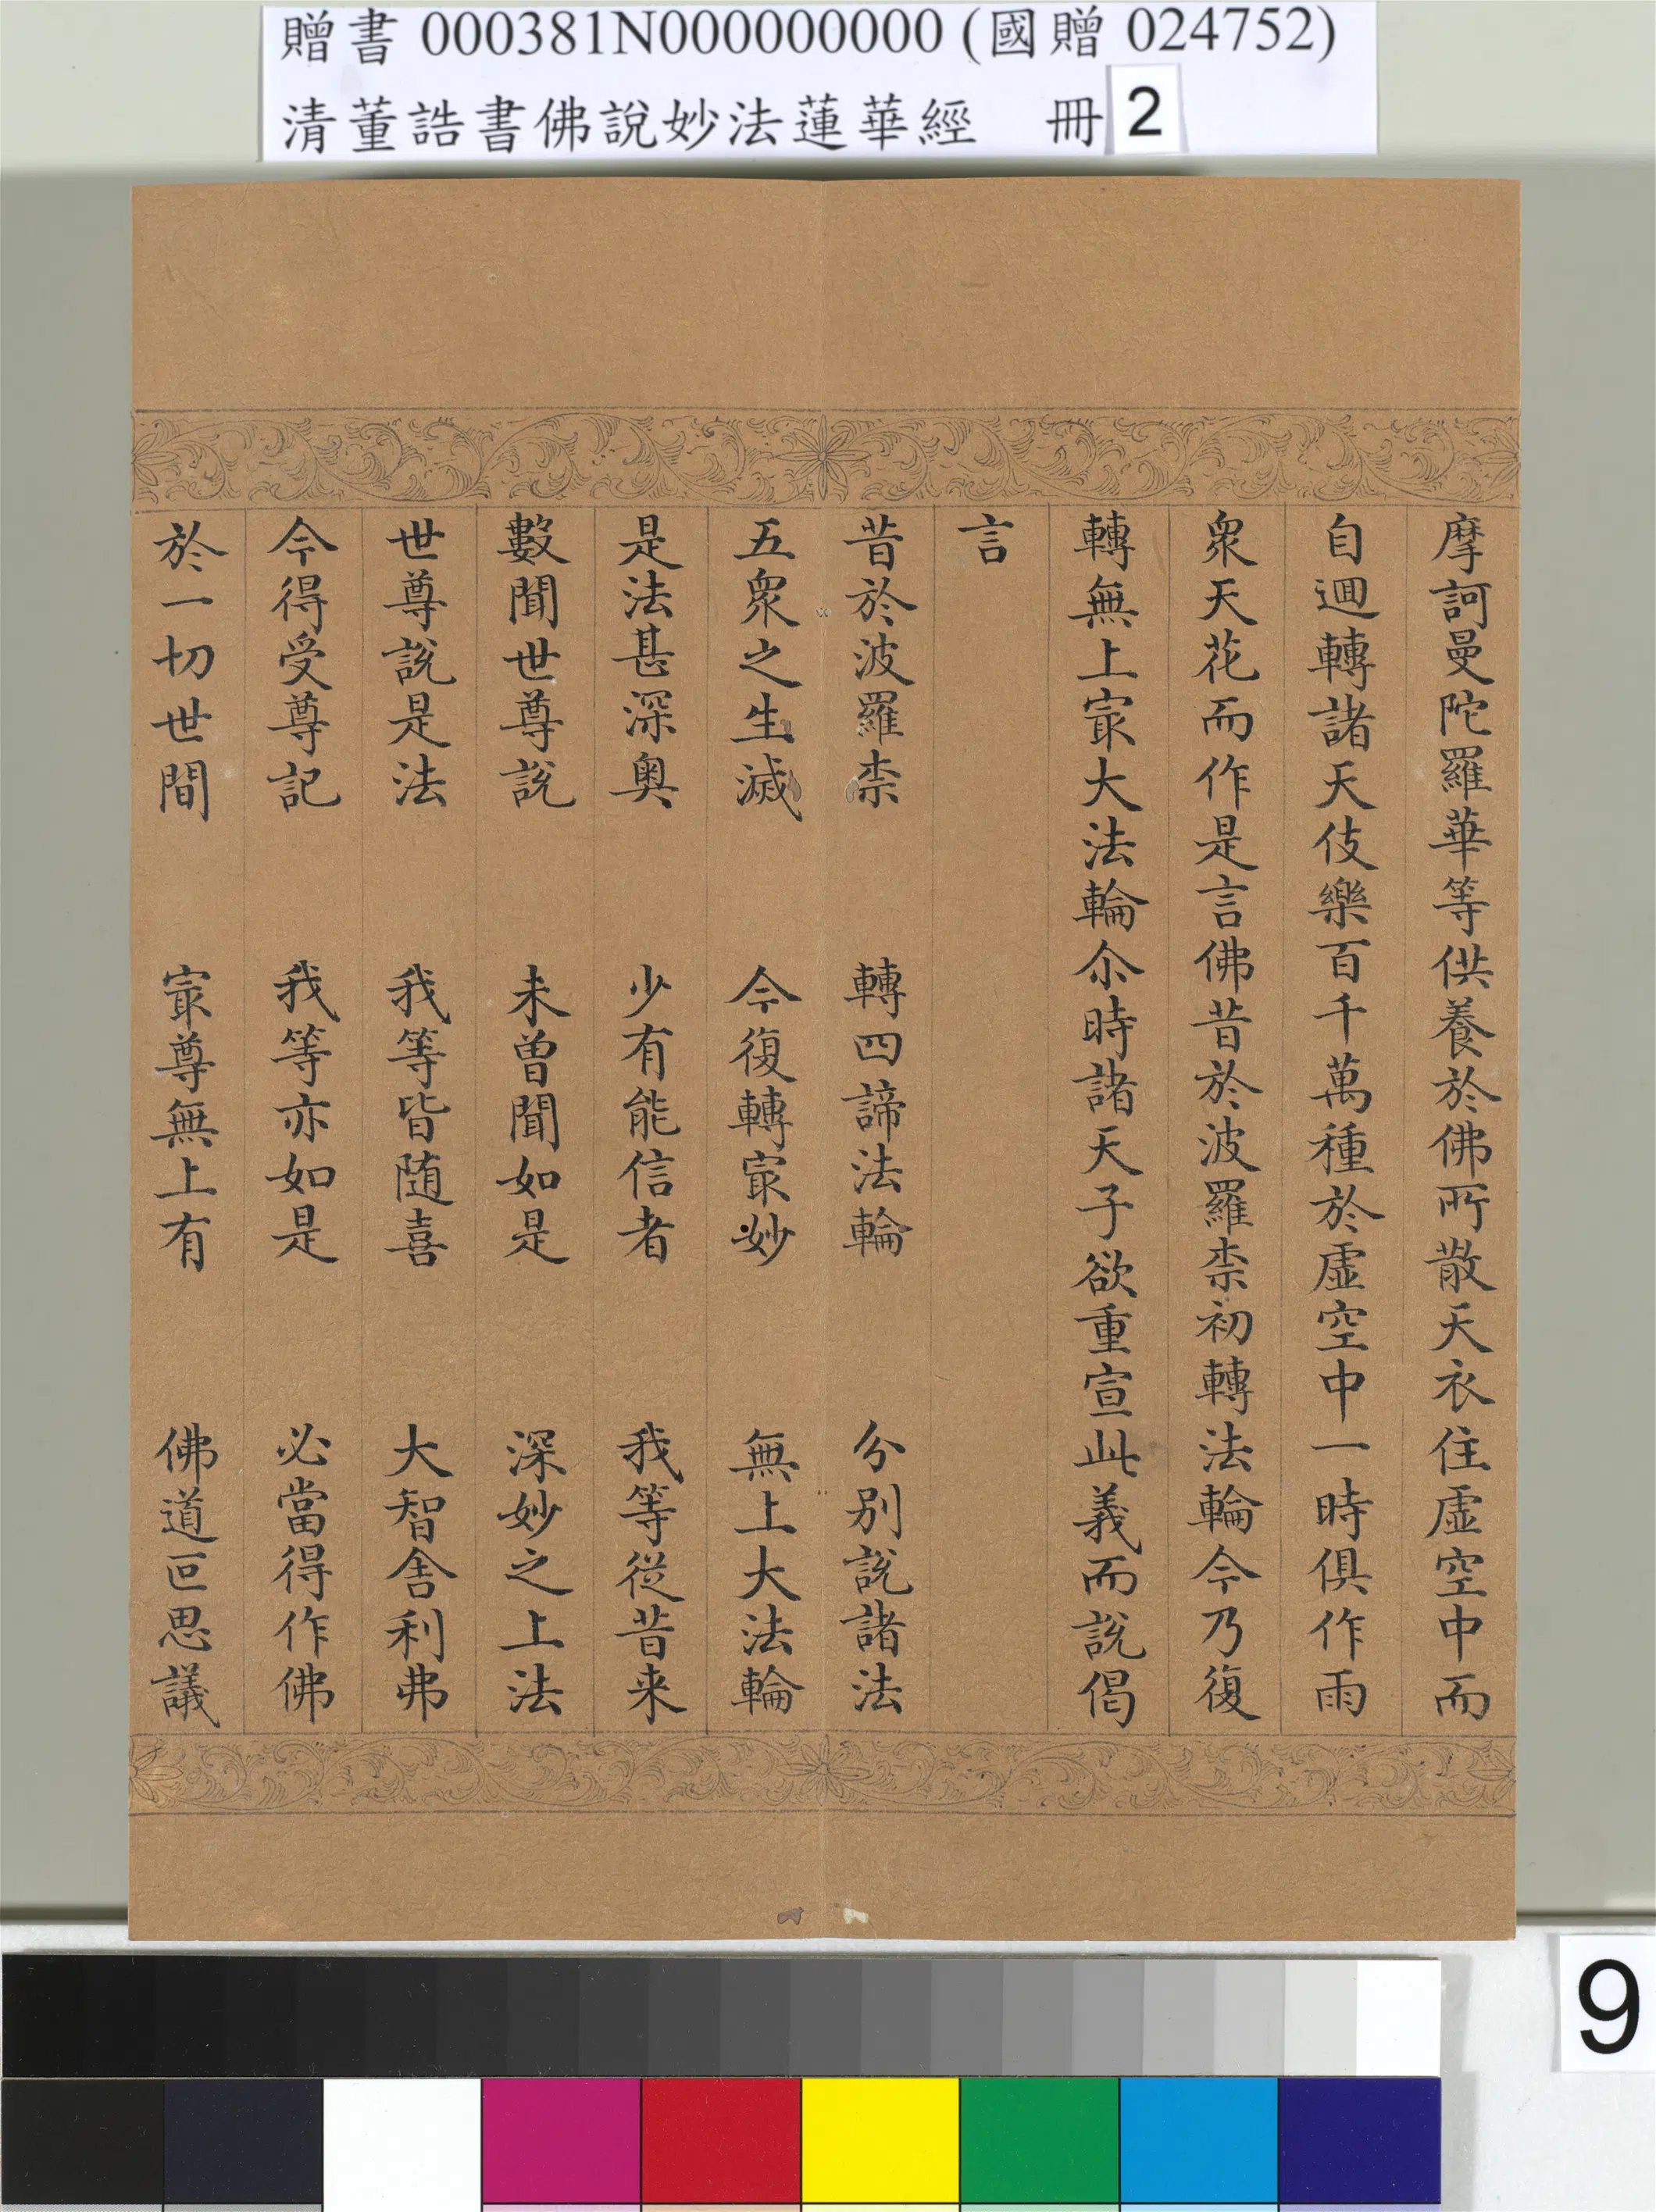 贈書 000381N000000000 (國贈 024752)
清董誥書佛說妙法蓮華經 冊 2
摩訶曼陀羅華等供養於佛所散天衣住虛空中而
自迴轉諸天伎樂百千萬種於虛空中一時俱作雨
眾天花而作是言佛昔於波羅柰初轉法輪今乃復
轉無上㝡大法輪尒時諸天子欲重宣此義而說偈
言
昔於波羅柰 轉四諦法輪 分別說諸法
五眾之生滅 今復轉㝡妙 無上大法輪
是法甚深奧 少有能信者 我等從昔来
數聞世尊說 未曾聞如是 深妙之上法
世尊說是法 我等皆随喜 大智舍利弗
今得受尊記 我等亦如是 必當得作佛
於一切世間 㝡尊無上有 佛道叵思議
9